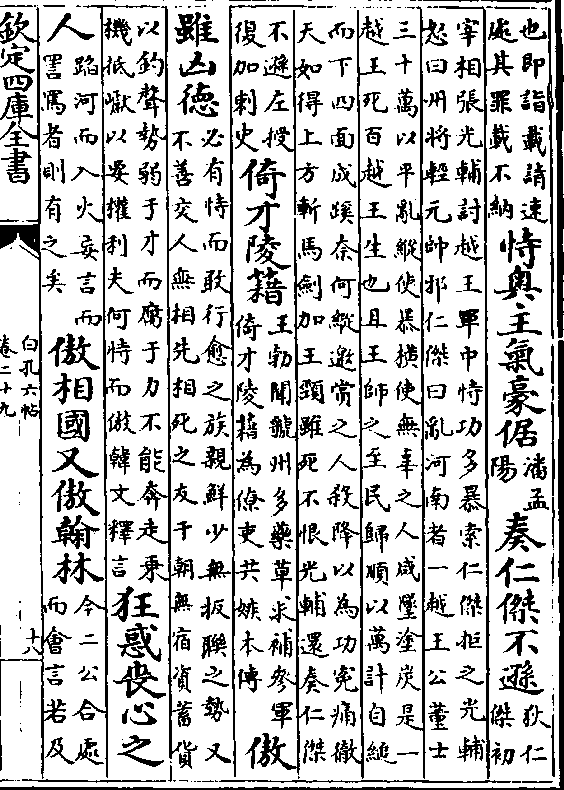 也即詣載請速
處其罪載不納
恃奧主氣豪倨
潘孟
陽
奏仁傑不遜
狄仁
傑初
宰相張光輔討越王軍中恃功多暴索仁傑拒之光輔
怒曰州將輕元帥邪仁傑曰亂河南者一越王公董士
三十萬以平亂縱使暴橫使無辜之人咸墜塗炭是一
越王死百越王生也且王師之至民歸順以萬計自縋
而下四面成蹊奈何縱邀賞之人殺降以為功冤痛徹
天如得上方斬馬劍加王頸雖死不恨光輔還奏仁傑
不遜左授
復加刺史
倚才陵藉
王勃聞虢州多藥草求補參軍
倚才陵藉為僚吏共嫉本傳
傲
雖凶德
必有恃而敢行愈之族親鮮少無扳聯之勢又
不善交人無相先相死之友于朝無宿資蓄貨
以釣聲勢弱于才而腐于力不能奔走乘
機抵巇以要權利夫何恃而傲韓文釋言
狂惑喪心之
人
蹈河而入火妄言而
詈罵者則有之矣
傲相國又傲翰林
今二公合處
而會言若及
欽定四庫全書
白孔六帖
卷二十九
十六